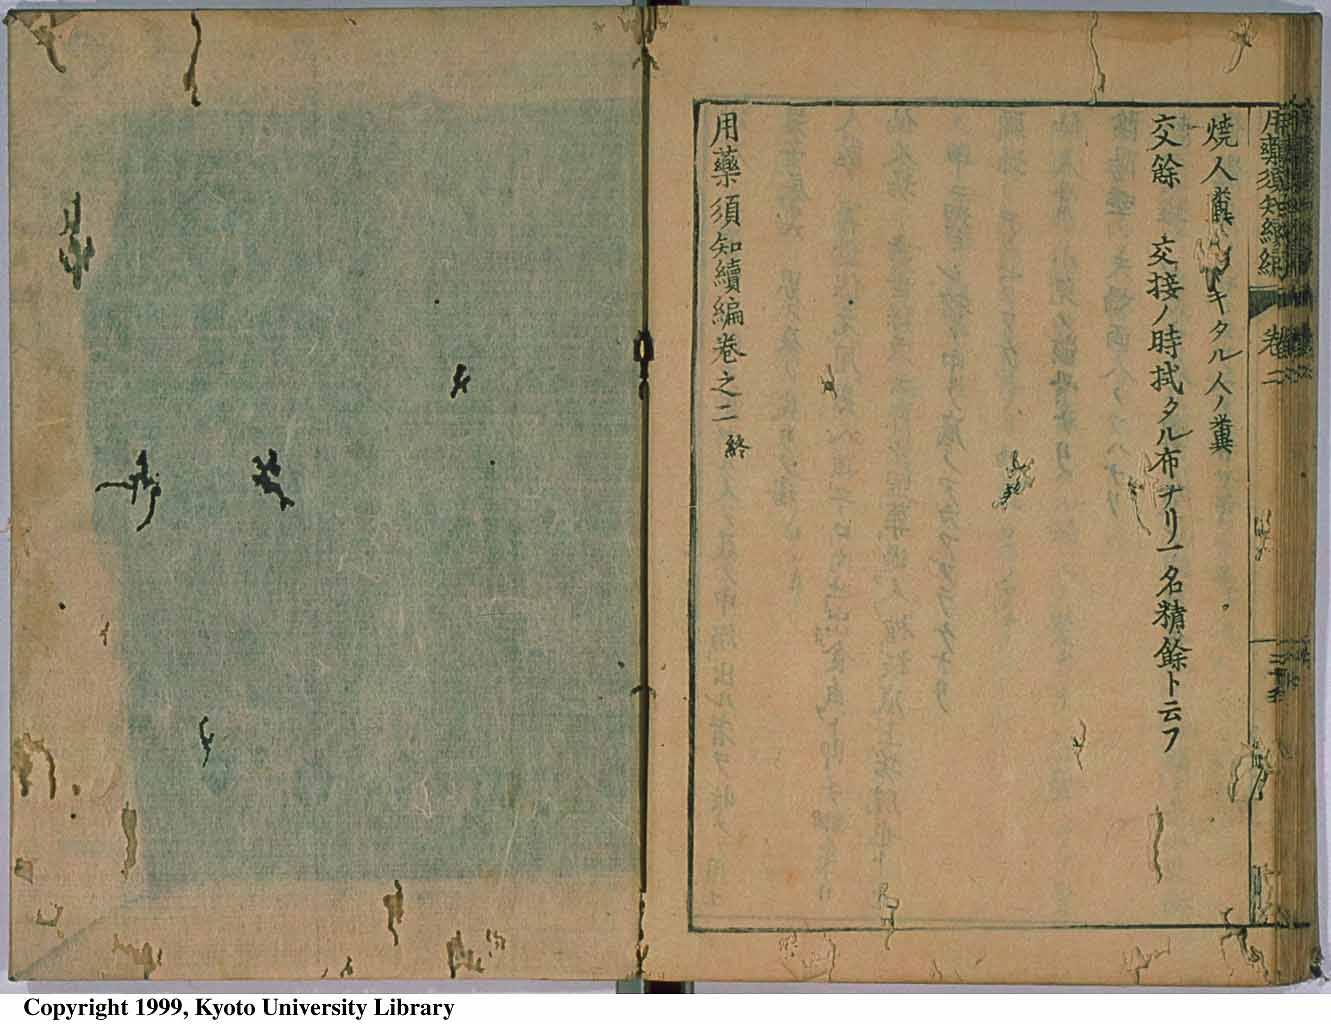 用藥須知續編 卷二
燒人糞 ヤキタル人ノ糞
交餘 交接ノ時拭タル布ナリ一名精餘ト云フ
用藥須知續編卷之二 終
Copyright 1999, Kyoto University Library